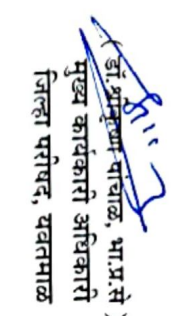 (डॉ.श्रीकृष्ण पांचाळ, भा.प्र.से)
मुख्य कार्यकारी अधिकारी
जिल्हा परिषद, यवतमाळ